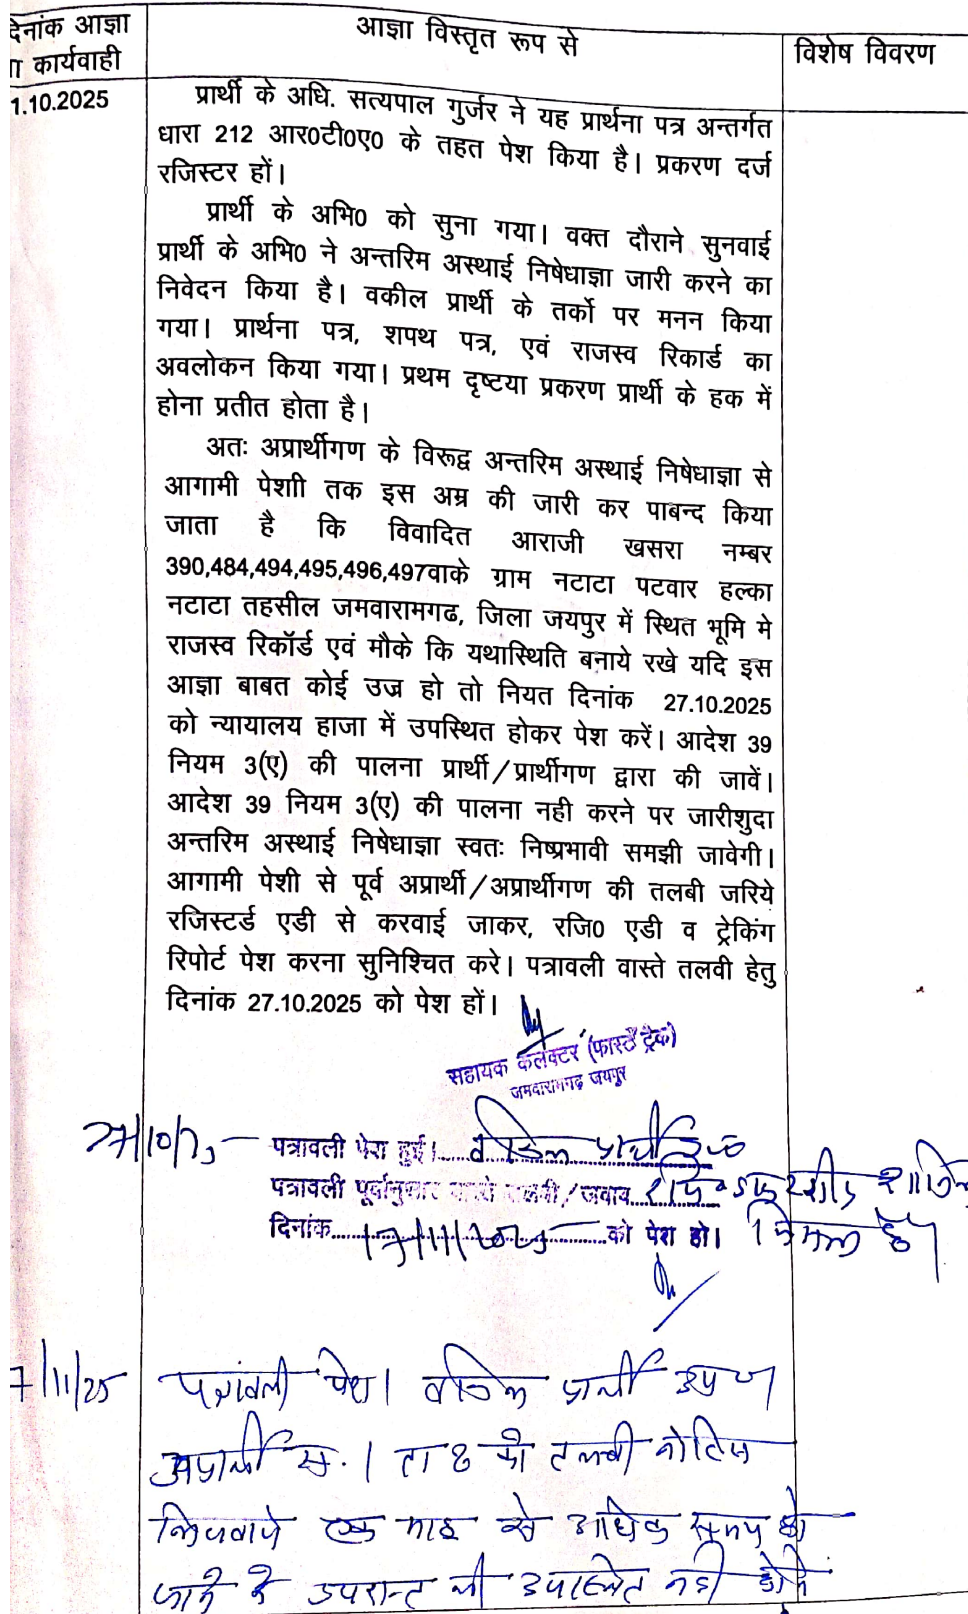 दिनांक आज्ञा
ा कार्यवाही
आज्ञा विस्तृत रूप से
विशेष विवरण
1.10.2025
प्रार्थी के अधि. सत्यपाल गुर्जर ने यह प्रार्थना पत्र अन्तर्गत
धारा 212 आर0टी0ए0 के तहत पेश किया है। प्रकरण दर्ज
रजिस्टर हों।
प्रार्थी के अभि0 को सुना गया। वक्त दौराने सुनवाई
प्रार्थी के अभि0 ने अन्तरिम अस्थाई निषेधाज्ञा जारी करने का
निवेदन किया है। वकील प्रार्थी के तर्को पर मनन किया
गया। प्रार्थना पत्र, शपथ पत्र, एवं राजस्व रिकार्ड का
अवलोकन किया गया। प्रथम दृष्टया प्रकरण प्रार्थी के हक में
होना प्रतीत होता है।
अतः अप्रार्थीगण के विरूद्व अन्तरिम अस्थाई निषेधाज्ञा से
आगामी पेशाी तक इस अम्र की जारी कर पाबन्द किया
जाता है कि विवादित आराजी खसरा नम्बर
390,484,494,495,496,497वाके ग्राम नटाटा पटवार हल्का
नटाटा तहसील जमवारामगढ, जिला जयपुर में स्थित भूमि मे
राजस्व रिकॉर्ड एवं मौके कि यथास्थिति बनाये रखे यदि इस
आज्ञा बाबत कोई उज्र हो तो नियत दिनांक 27.10.2025
को न्यायालय हाजा में उपस्थित होकर पेश करें। आदेश 39
नियम 3(ए) की पालना प्रार्थी/प्रार्थीगण द्वारा की जावें।
आदेश 39 नियम 3(ए) की पालना नही करने पर जारीशुदा
अन्तरिम अस्थाई निषेधाज्ञा स्वतः निष्प्रभावी समझी जावेगी।
आगामी पेशी से पूर्व अप्रार्थी/अप्रार्थीगण की तलबी जरिये
रजिस्टर्ड एडी से करवाई जाकर, रजि0 एडी व ट्रेकिंग
रिपोर्ट पेश करना सुनिश्चित करे। पत्रावली वास्ते तलवी हेतु
दिनांक 27.10.2025 को पेश हों।
सहायक कलक्टर (फास्ट ट्रैक)
जमवारामगढ़ जयपुर
27/10/25 पत्रावली पेश हुई। वकिल प्रार्थी
पत्रावली पूर्वानुसार वास्ते तलवी/जवाब
दिनांक 17/11/2025 को पेश हो।
7/11/25 पत्रांवली पेश। वकिल प्रार्थी उप0
अप्रार्थी सं. 1 ता 8 को तलबी नोटिस
एक माह से अधिक समय हो
जाने के उपरान्त भी उपस्थित नही होने